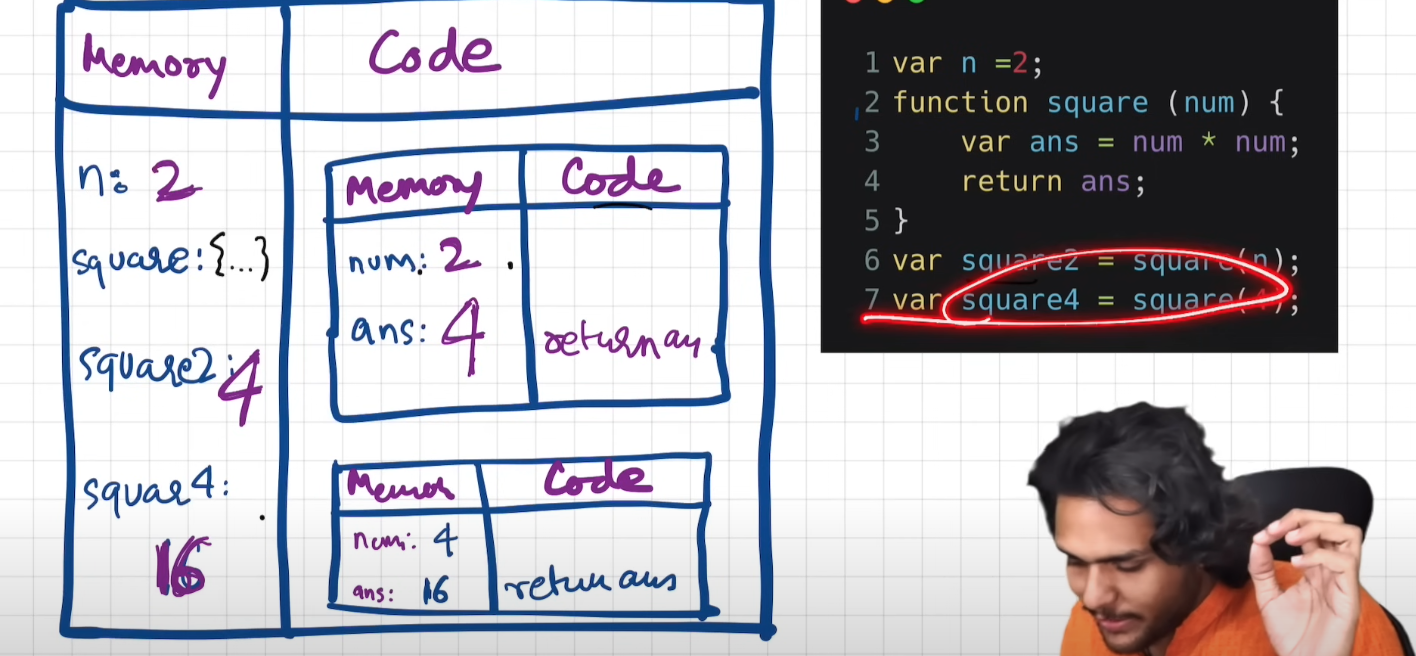 Memory Code
n: 2
square:{...}
square2: 4
squar4:
16
Memory Code
num: 2 .
ans: 4 return an
Memor Code
num: 4
ans: 16 return ans
1 var n =2;
2 function square (num) {
3 var ans = num * num;
4 return ans;
5 }
6 var square2 = square(n);
7 var square4 = square(4);